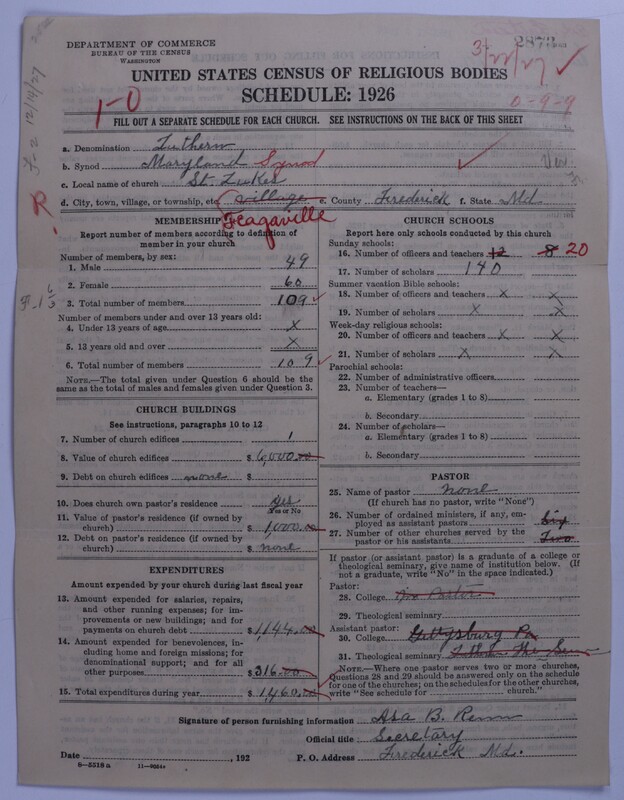 DEPARTMENT OF COMMERCE
BUREAU OF THE CENSUS
WASHINGTON
3/22/27
UNITED STATES CENSUS OF RELIGIOUS BODIES
SCHEDULE: 1926
1-0
0-9-9
J-2 12/19/27
FILL OUT A SEPARATE SCHEDULE FOR EACH CHURCH. SEE INSTRUCTIONS ON THE BACK OF THIS SHEET
a. Denomination Luthern
b. Synod Maryland Synod
c. Local name of church St Lukes
d. City, town, village, or township, etc. village e. County Frederick f. State Md.
R
Feagaville
MEMBERSHIP
Report number of members according to definition of
member in your church
Number of members, by sex:
1. Male 49
2. Female 60
3. Total number of members 109
Number of members under and over 13 years old:
4. Under 13 years of age X
5. 13 years old and over X
6. Total number of members 109
NOTE.—The total given under Question 6 should be
same as the total of males and females given under Question 3.
CHURCH BUILDINGS
See instructions, paragraphs 10 to 12
7. Number of church edifices 1
8. Value of church edifices $ 6,000.00
9. Debt on church edifices none $
10. Does church own pastor's residence Yes
Yes or No
11. Value of pastor's residence (if owned by
church) $ 1,000.00
12. Debt on pastor's residence (if owned by
church) $ none
EXPENDITURES
Amount expended by your church during last fiscal year
13. Amount expended for salaries, repairs,
and other running expenses; for im-
provements or new buildings; and for
payments on church debt $ 1,144.00
14. Amount expended for benevolences, in-
cluding home and foreign missions; for
denominational support; and for all
other purposes $ 316.00
15. Total expenditures during year $ 1,460.00
CHURCH SCHOOLS
Report here only schools conducted by this church
Sunday schools:
16. Number of officers and teachers 12 8 20
17. Number of scholars 140
Summer vacation Bible schools:
18. Number of officers and teachers X X
19. Number of scholars X X
Week-day religious schools:
20. Number of officers and teachers X X
21. Number of scholars X X
Parochial schools:
22. Number of administrative officers
23. Number of teachers—
a. Elementary (grades 1 to 8)
b. Secondary
24. Number of scholars—
a. Elementary (grades 1 to 8)
b. Secondary
PASTOR
25. Name of pastor none
(If church has no pastor, write "None")
26. Number of ordained ministers, if any, em-
ployed as assistant pastors Six
27. Number of other churches served by the
pastor or his assistants Two
If pastor (or assistant pastor) is a graduate of a college or
theological seminary, give name of institution below. (If
not a graduate, write "No" in the space indicated.)
Pastor:
28. College No Pastor
29. Theological seminary
Assistant pastor:
30. College Gettysburg Pa
31. Theological seminary
NOTE.—Where one pastor serves two or more churches,
Questions 28 and 29 should be answered only on the schedule
for one of the churches; on the schedules for the other churches,
write "See schedule for church."
Signature of person furnishing information Asa B. Renn
Official title Secretary
Date , 192 P. O. Address Frederick Md.
8—5510 a